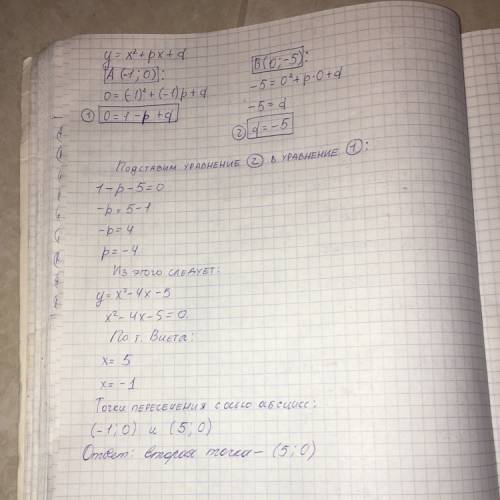 y = x² + px + d
A (-1; 0):
0 = (-1)² + (-1)p + d
① 0 = 1 - p + d
B(0; -5):
-5 = 0² + p·0 + d
-5 = d
② d = -5
Подставим уравнение ② в уравнение ①:
1 - p - 5 = 0
-p = 5 - 1
-p = 4
p = -4
Из этого следует:
y = x² - 4x - 5
x² - 4x - 5 = 0
По т. Виета:
x = 5
x = -1
Точки пересечения с осью абсцисс:
(-1; 0) и (5; 0)
Ответ: вторая точка - (5; 0)